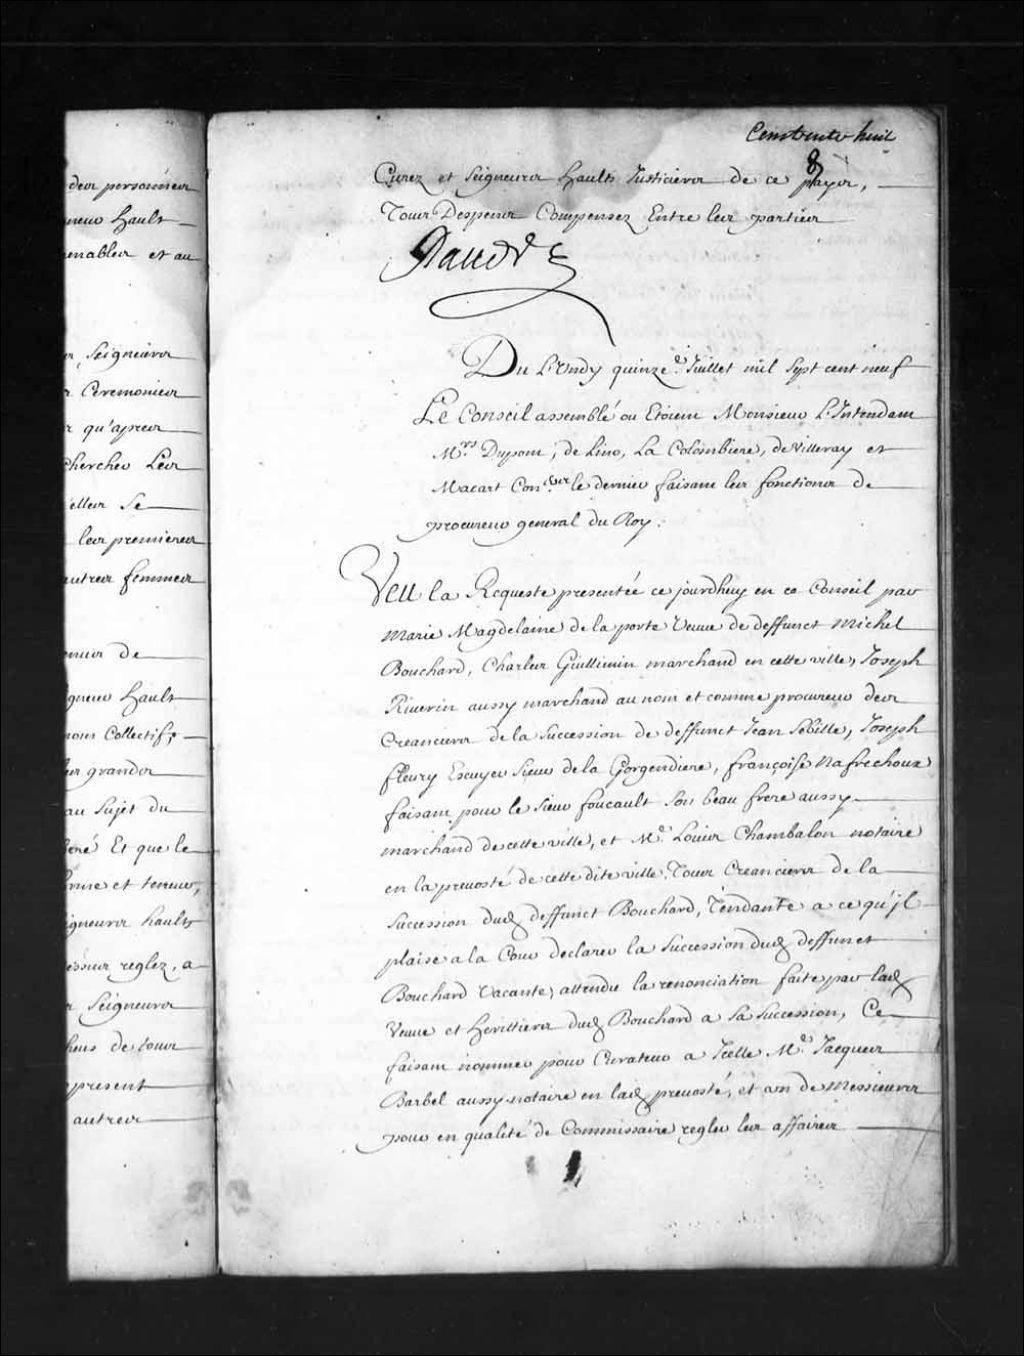 Cent trente huit
8
des personnes
neur hault
enables et au
s, Seigneurs
s Ceremonies
r qu'apres
chercher Les
elles Se
les premieres
autres femmes
enir de
gneur hault
nom Collectif,
les grandes
au Sujet du
Et que le
et teneur,
igneurs haults
reglez, a
s Seigneurs
de tour
present
autres
Curez et Seigneurs haults Justiciers de ce pays,
Tous Despens Compensez Entre les parties
Raudot
Du Lundy quinze.e Juillet mil Sept cent neuf
Le Conseil assemblé ou Etoient Monsieur L'Intendant
M.rs Dupont, de Lino, La Colombiere, de Villeray et
Macart Con.ers le dernier faisant les fonctions de
procureur general du Roy.
Veu la Requeste presentée ce jourdhuy en ce Conseil par
Marie Magdelaine de la porte Veuve de deffunct Michel
Bouchard, Charles Guillimin marchand en cette ville, Joseph
Riverin aussy marchand au nom et comme procureur des
Creanciers de la Succession de deffunct Jean Sebille, Joseph
fleury Escuyer Sieur de la Gorgendiere, françoise Nafrechoux
faisant pour le Sieur foucault Son beau frere aussy
marchand de cette ville, et M.e Louis Chambalon notaire
en la prevosté de cette dite ville, Tous Creanciers de la
Succession dud. deffunct Bouchard, Tendante a ce qu'jl
plaise a la Cour declarer la Succession dud. deffunct
Bouchard Vacante, attendu la renonciation faite par lad.
Veuve et heritiers dud. Bouchard a Sa Succession, Ce
faisant nommer pour Curateur a Jcelle M.e Jacques
Barbel aussy notaire en lad. prevosté, et un de Messieurs
pour en qualité de Commissaire regler les affaires